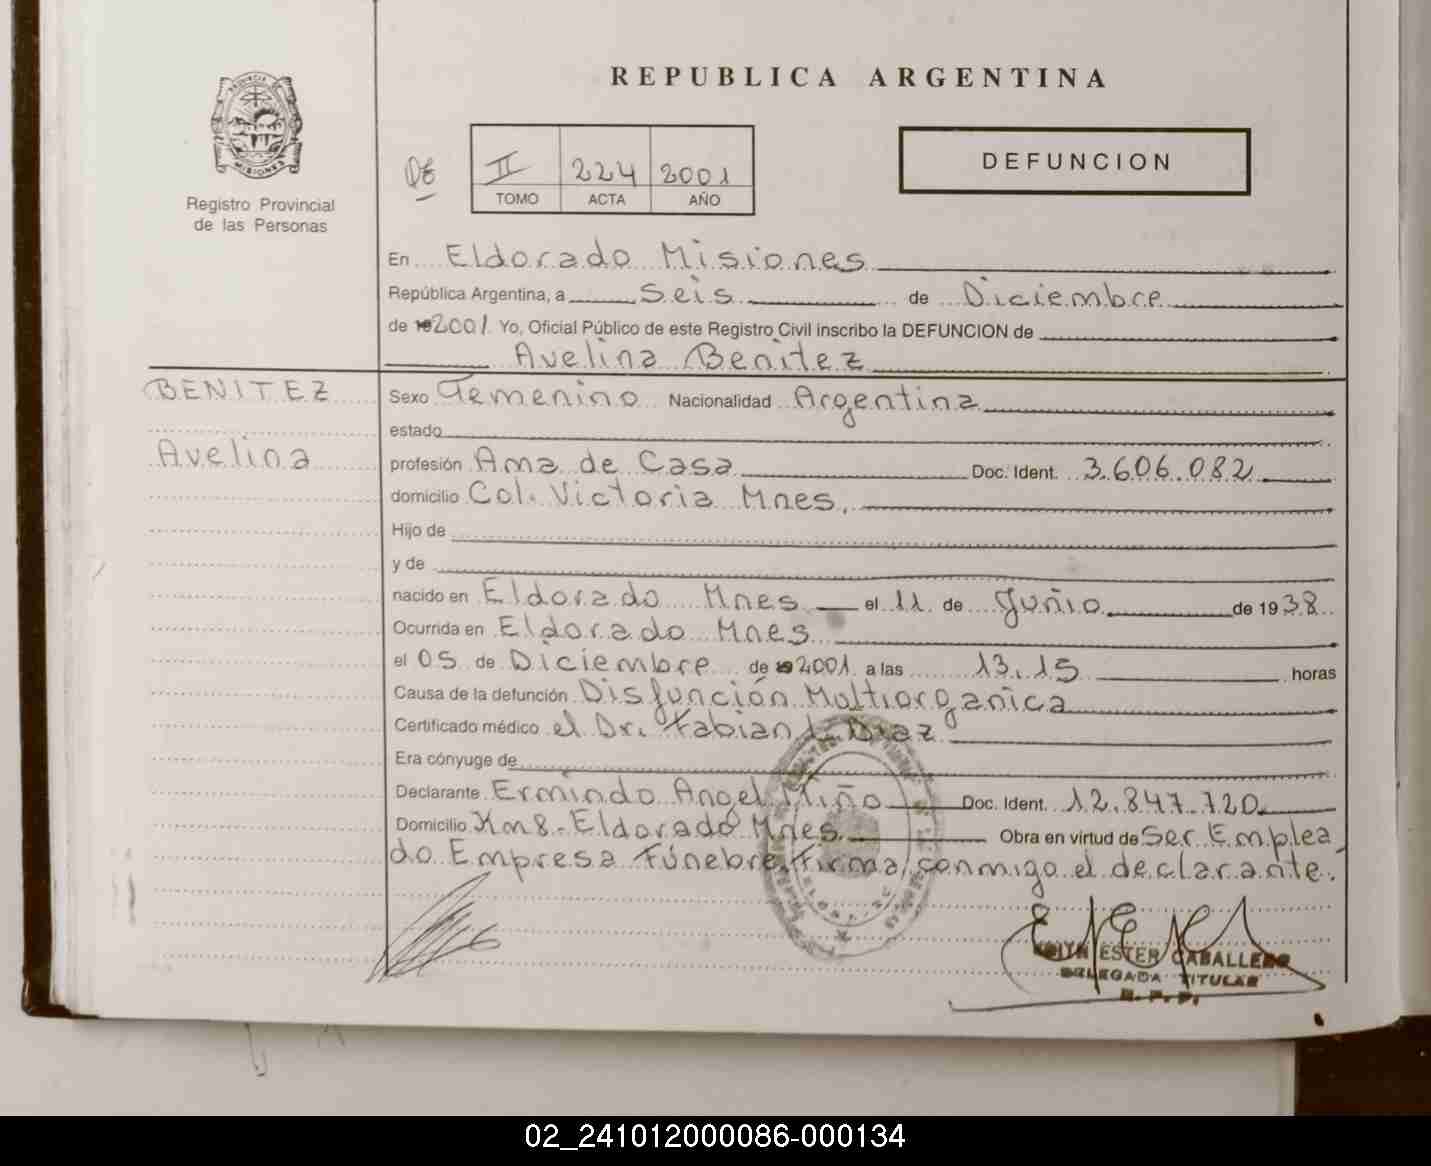 REPUBLICA ARGENTINA
PROVINCIA DE
MISIONES
Registro Provincial
de las Personas
DE
II 224 2001
TOMO ACTA AÑO
DEFUNCION
En Eldorado Misiones
República Argentina, a Seis de Diciembre
de 19 2001 Yo, Oficial Público de este Registro Civil inscribo la DEFUNCION de
Avelina Benitez
BENITEZ
Avelina
Sexo Femenino Nacionalidad Argentina
estado
profesión Ama de Casa Doc. Ident. 3.606.082
domicilio Col. Victoria Mnes.
Hijo de
y de
nacido en Eldorado Mnes el 11 de Juñio de 1938
Ocurrida en Eldorado Mnes
el 05 de Diciembre de 19 2001 a las 13.15 horas
Causa de la defunción Disfunción Multiorganica
Certificado médico el Dr. Fabian L. Diaz
Era cónyuge de
Declarante Ermindo Angel Miño Doc. Ident. 12.847.720
Domicilio Km 8. Eldorado Mnes. Obra en virtud de Ser Emplea
do Empresa Fúnebre, Firma conmigo el declarante.
EDITH ESTER CABALLERO
DELEGADA TITULAR
R. P. P.
02_241012000086-000134